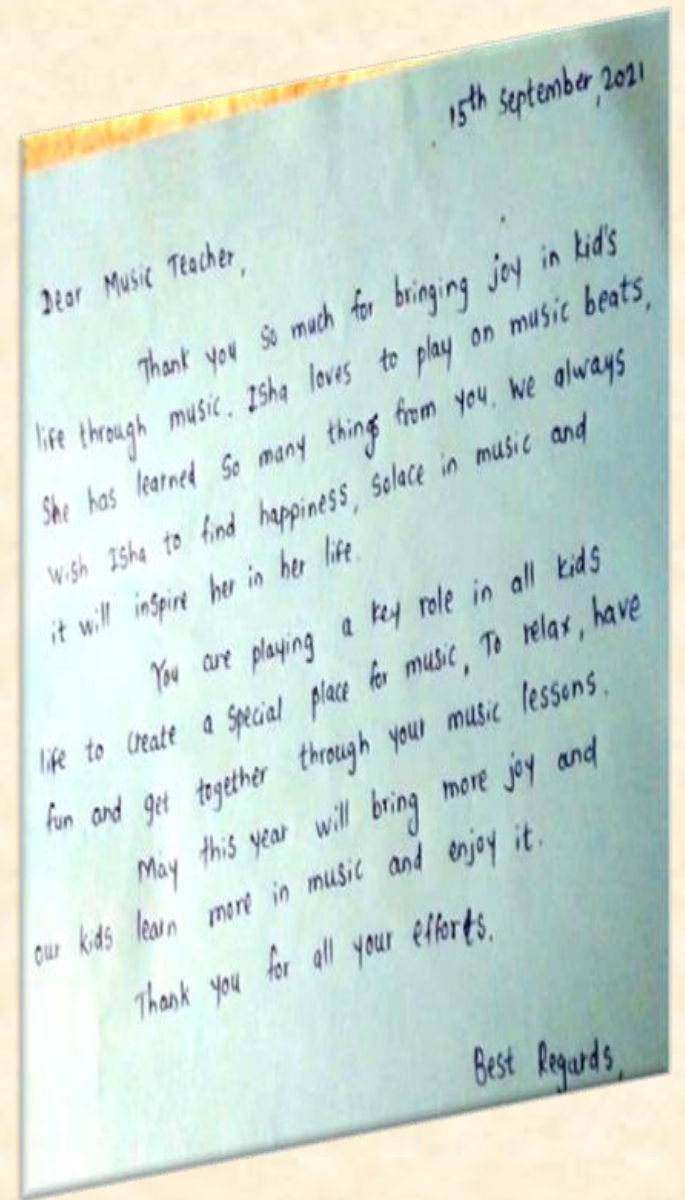 15th September, 2021
Dear Music Teacher,
Thank you so much for bringing joy in kid's
life through music. Isha loves to play on music beats,
She has learned so many things from you. We always
wish Isha to find happiness, solace in music and
it will inspire her in her life.
You are playing a key role in all kids
life to create a special place for music, To relax, have
fun and get together through your music lessons.
May this year will bring more joy and
our kids learn more in music and enjoy it.
Thank you for all your efforts.
Best Regards,